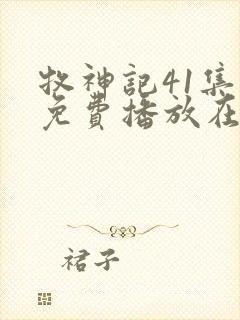 牧神記41集
免費播放在
裙子